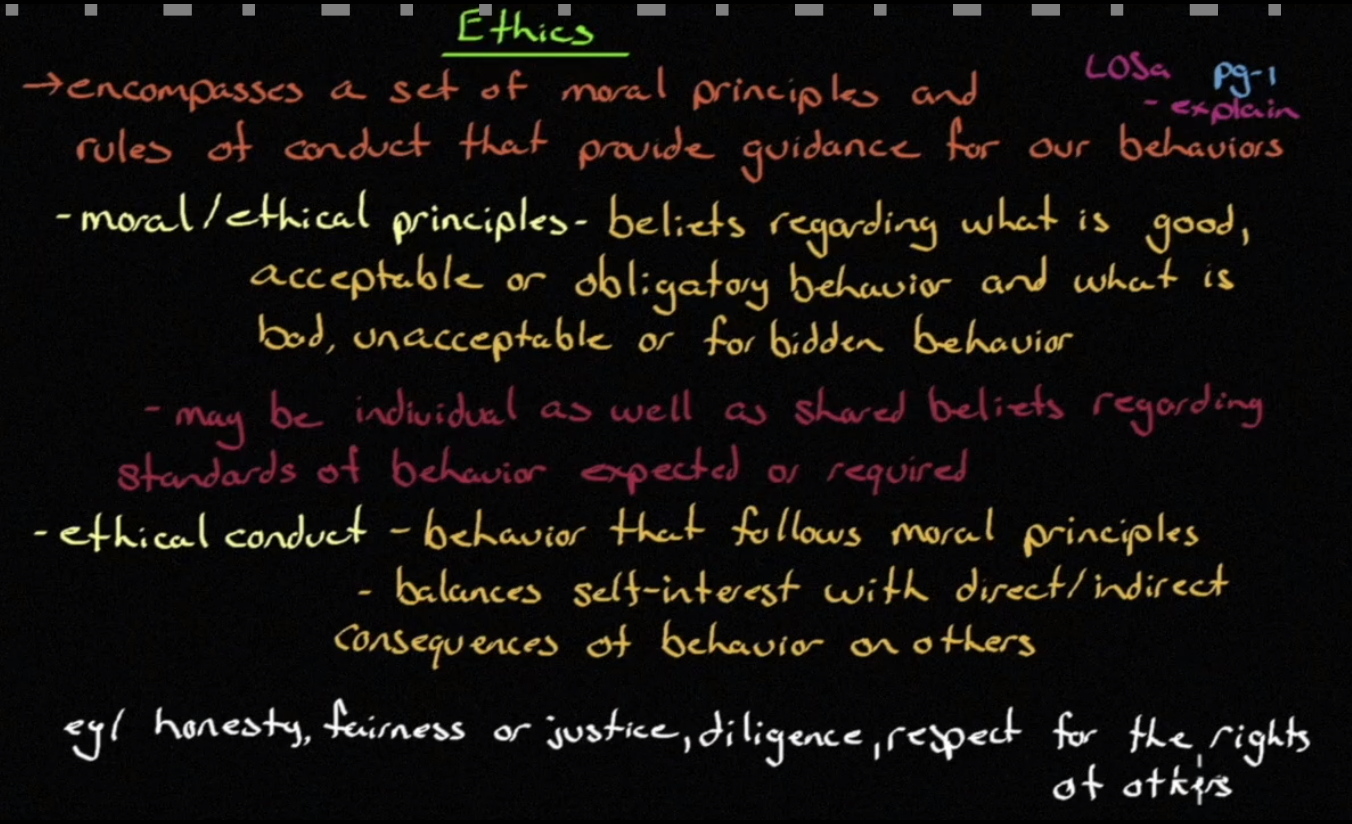 Ethics
LOSa pg-1
- explain
→encompasses a set of moral principles and
rules of conduct that provide guidance for our behaviors
- moral/ethical principles - beliefs regarding what is good,
acceptable or obligatory behavior and what is
bad, unacceptable or forbidden behavior
- may be individual as well as shared beliefs regarding
standards of behavior expected or required
- ethical conduct - behavior that follows moral principles
- balances self-interest with direct/indirect
consequences of behavior on others
eg/ honesty, fairness or justice, diligence, respect for the rights
of others